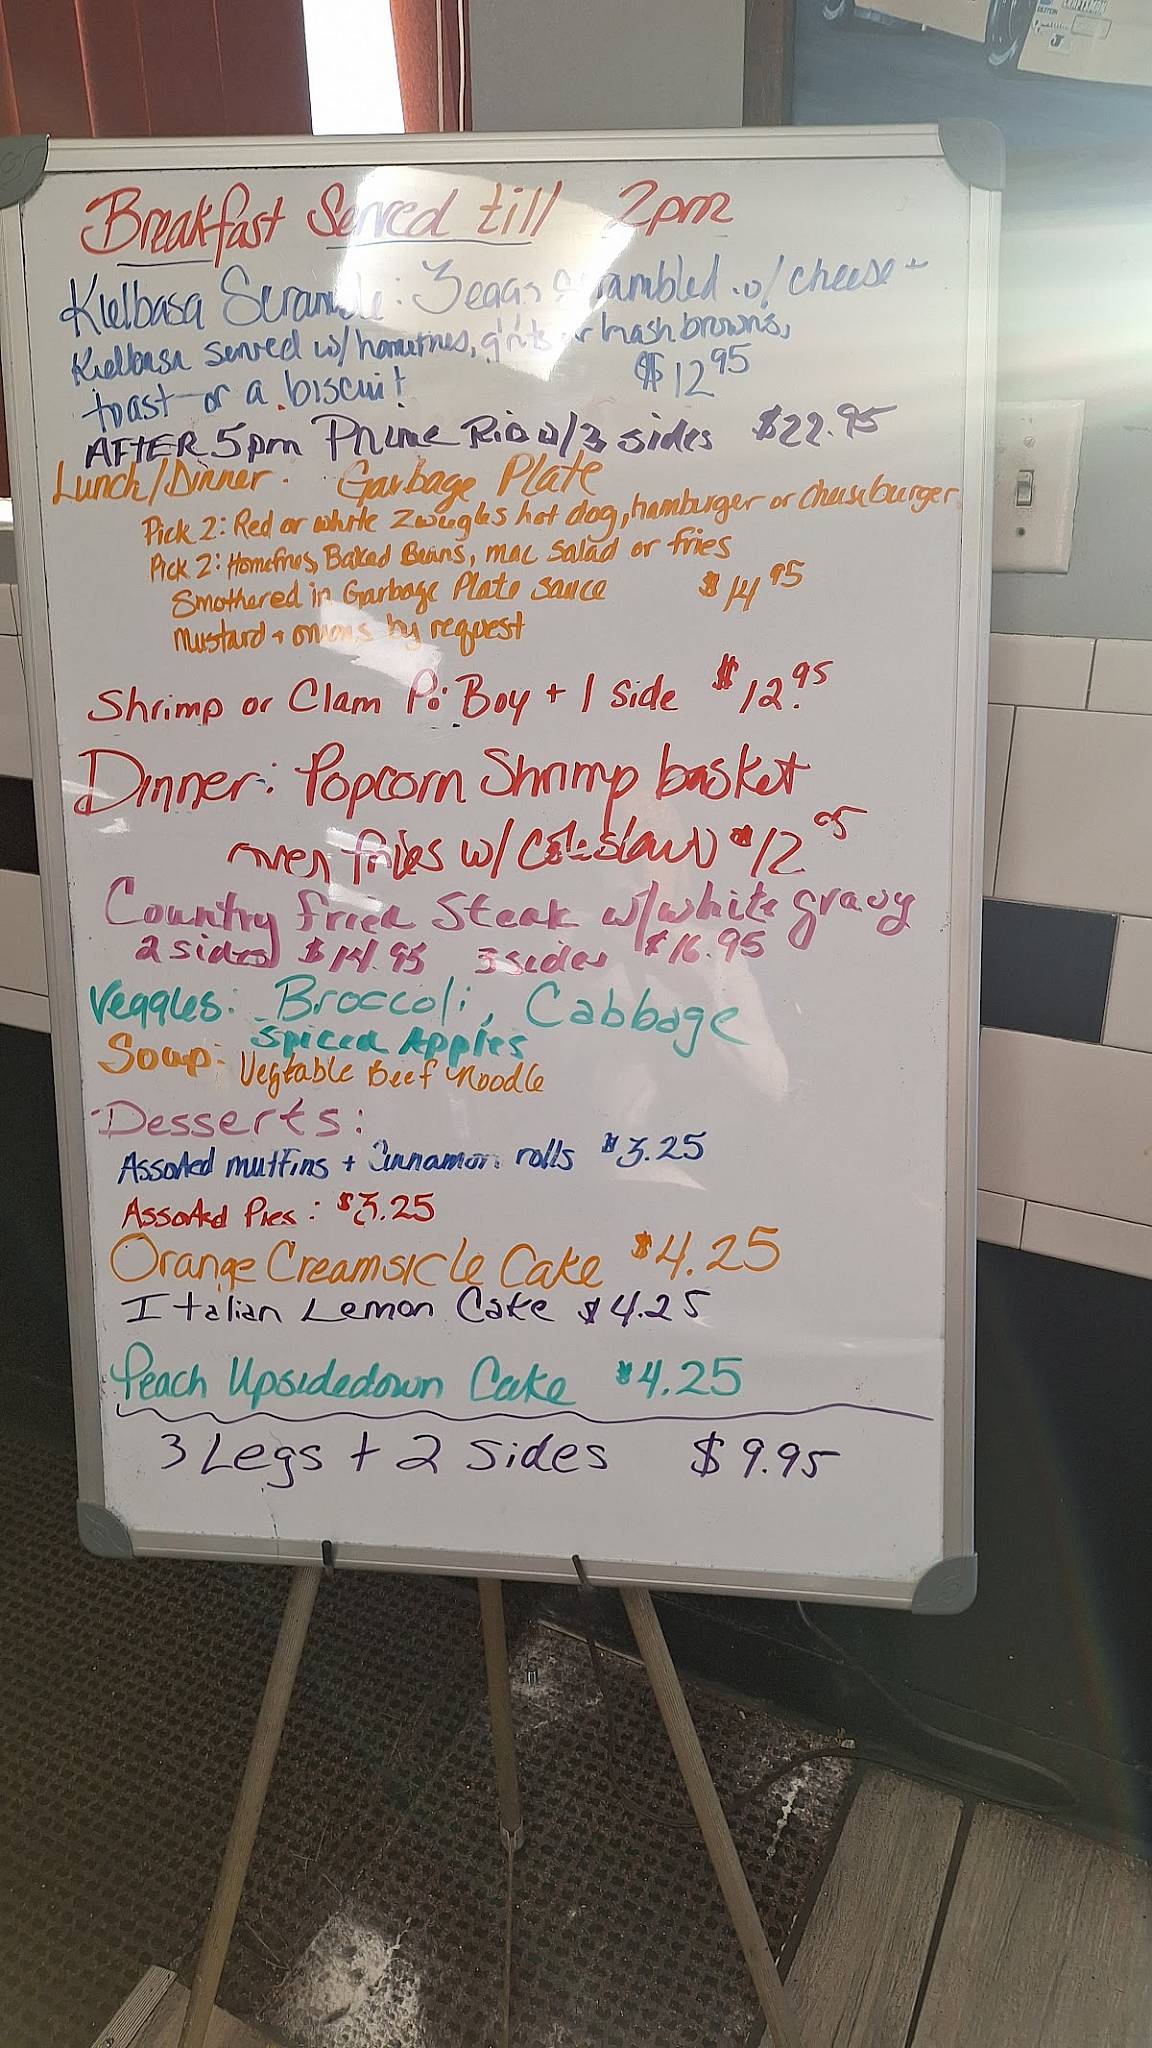 Breakfast Served till 2pm
Kielbasa Scramble: 3 eggs scrambled w/ cheese +
Kielbasa served w/ homefries, grits or hashbrowns,
toast or a biscuit $12 95
AFTER 5pm Prime Rib w/3 sides $22.95
Lunch/Dinner. Garbage Plate
Pick 2: Red or white Zweigles hot dog, hamburger or cheeseburger
Pick 2: Homefries, Baked Beans, mac salad or fries
Smothered in Garbage Plate sauce $14 95
Mustard + onions by request
Shrimp or Clam Po Boy + 1 side $12.95
Dinner: Popcorn Shrimp basket
over fries w/ Coleslaw $12 95
Country fried Steak w/white gravy
2 sides $14.95 3 sides $16.95
Veggies: Broccoli, Cabbage
Spiced Apples
Soup: Vegtable Beef Noodle
Desserts:
Assorted muffins + Cinnamon rolls $3.25
Assorted Pies: $3.25
Orange Creamsicle Cake $4.25
Italian Lemon Cake $4.25
Peach Upsidedown Cake $4.25
3 Legs + 2 Sides $9.95